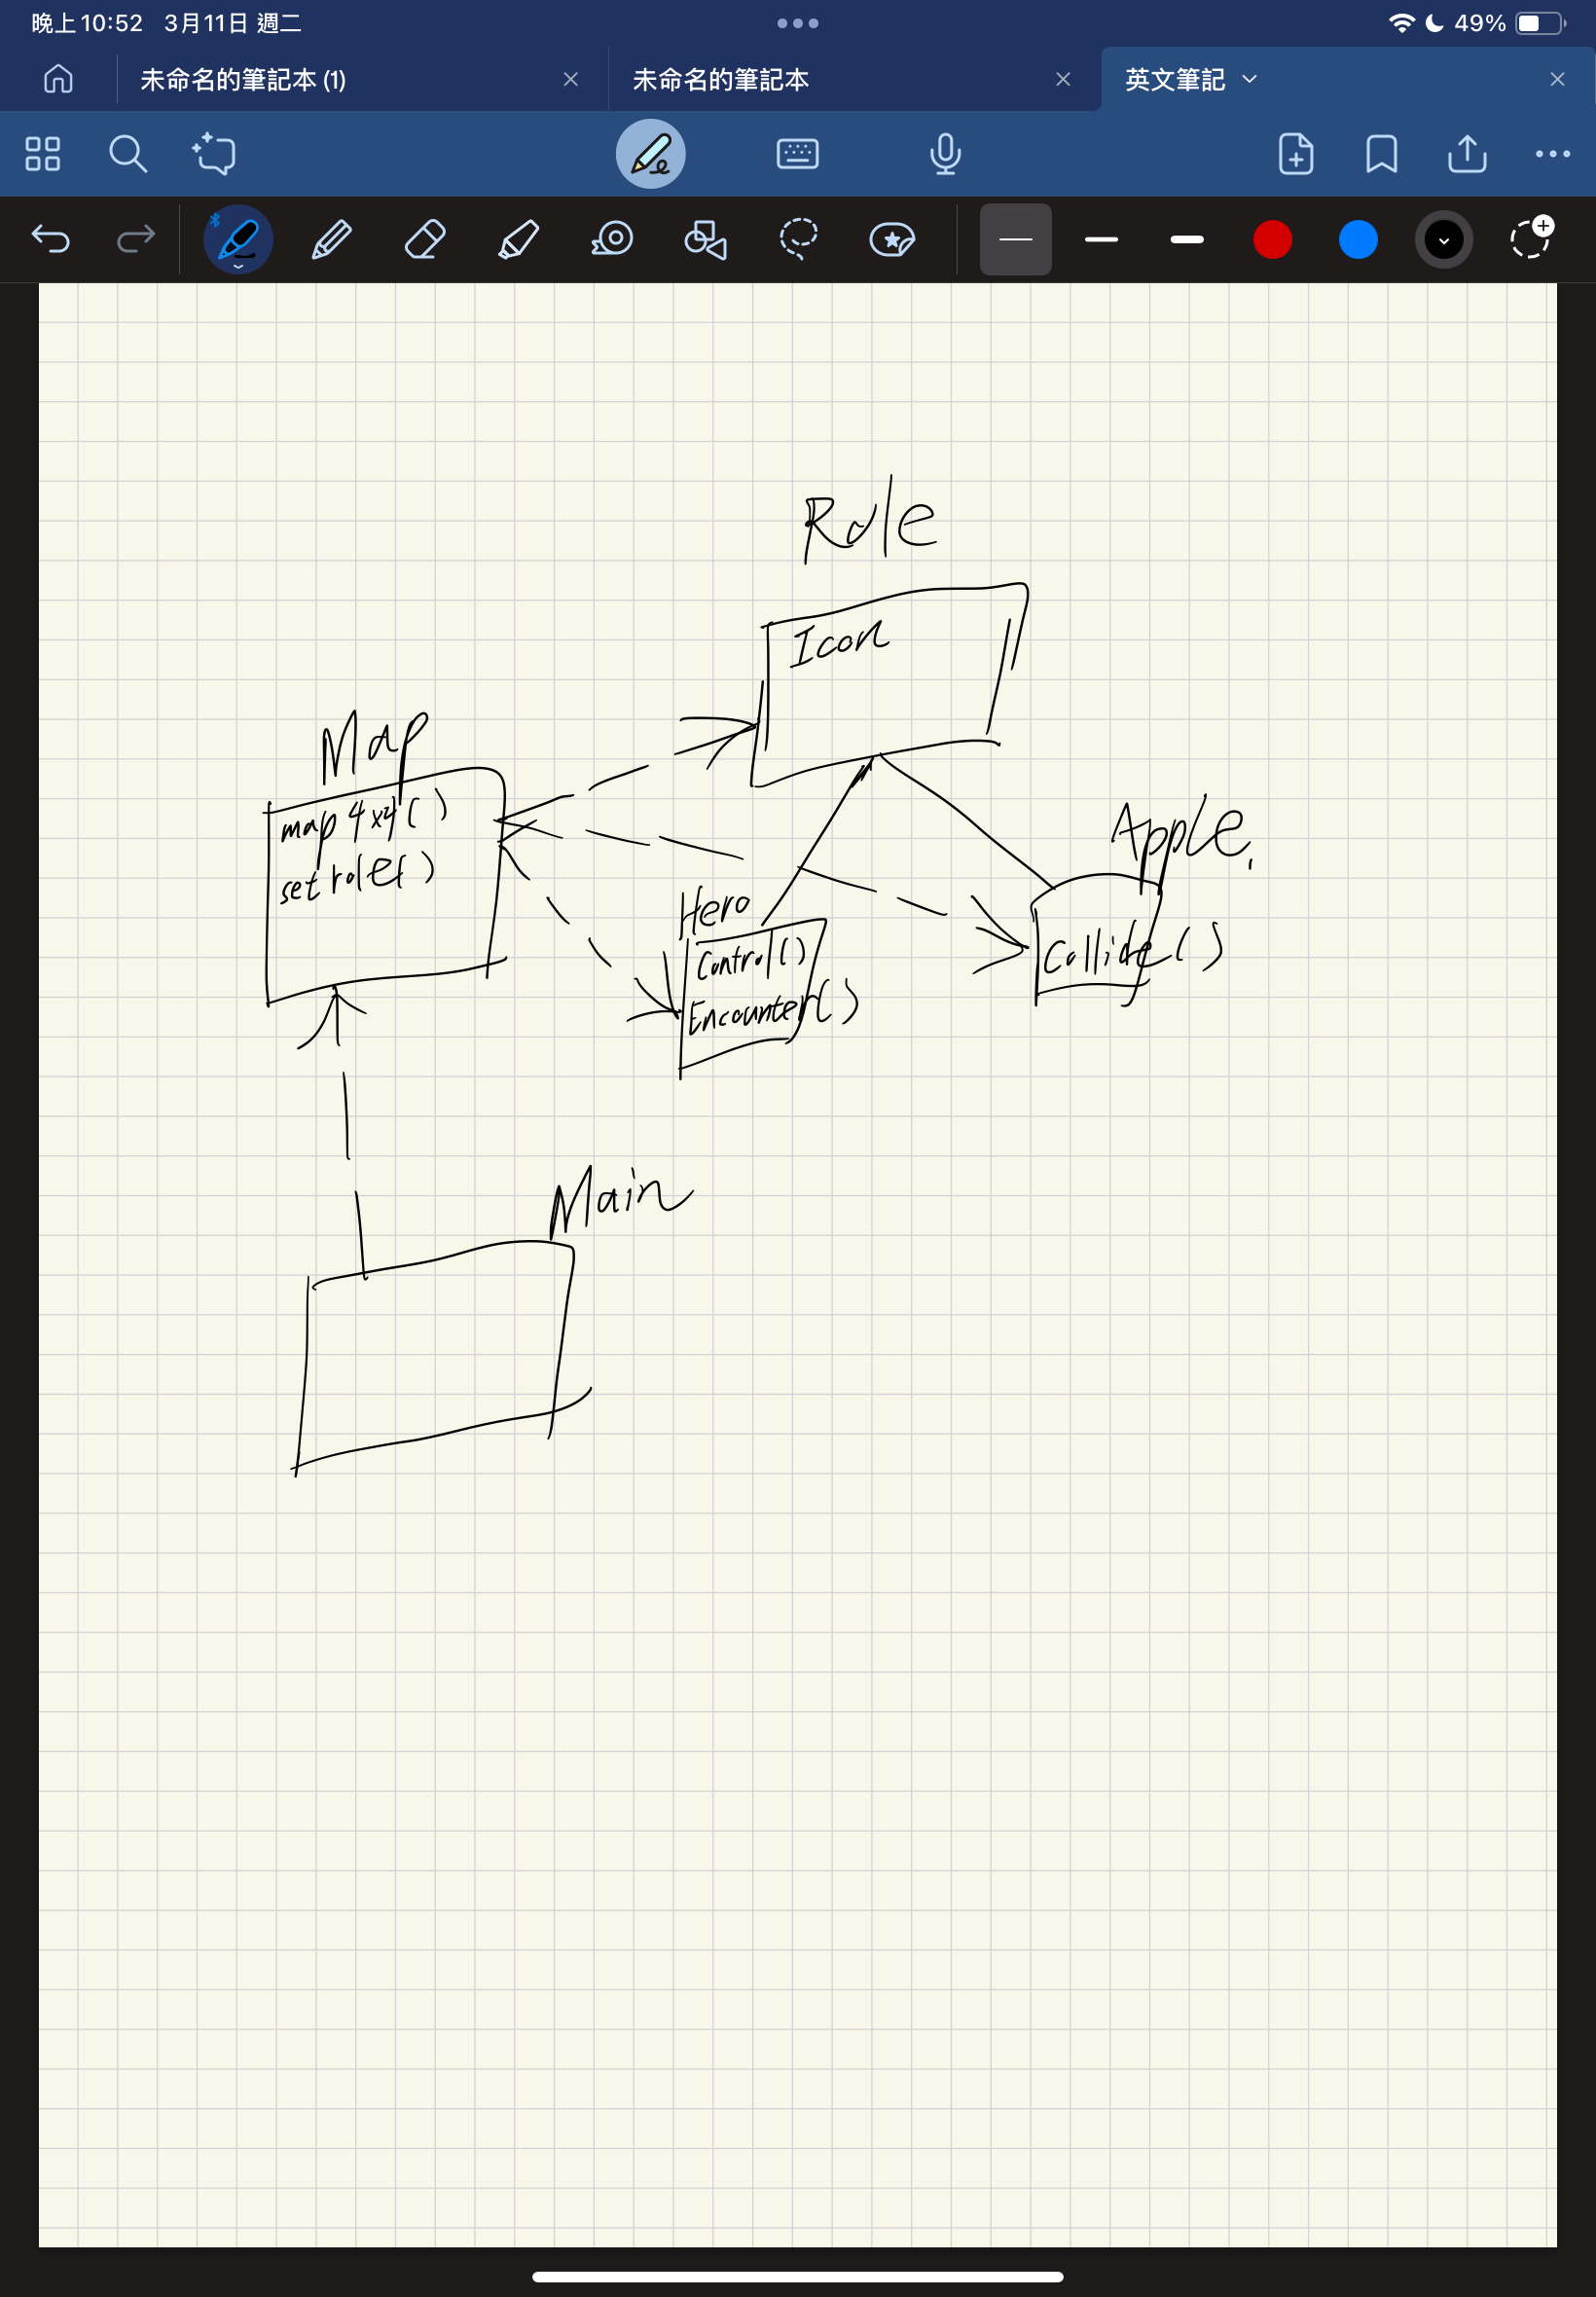 晚上10:52 3月11日 週二
49%
未命名的筆記本 (1)
未命名的筆記本
英文筆記
Role
Icon
Map
map 4x4()
setrole()
Apple
Collide()
Hero
Control()
Encounter()
Main